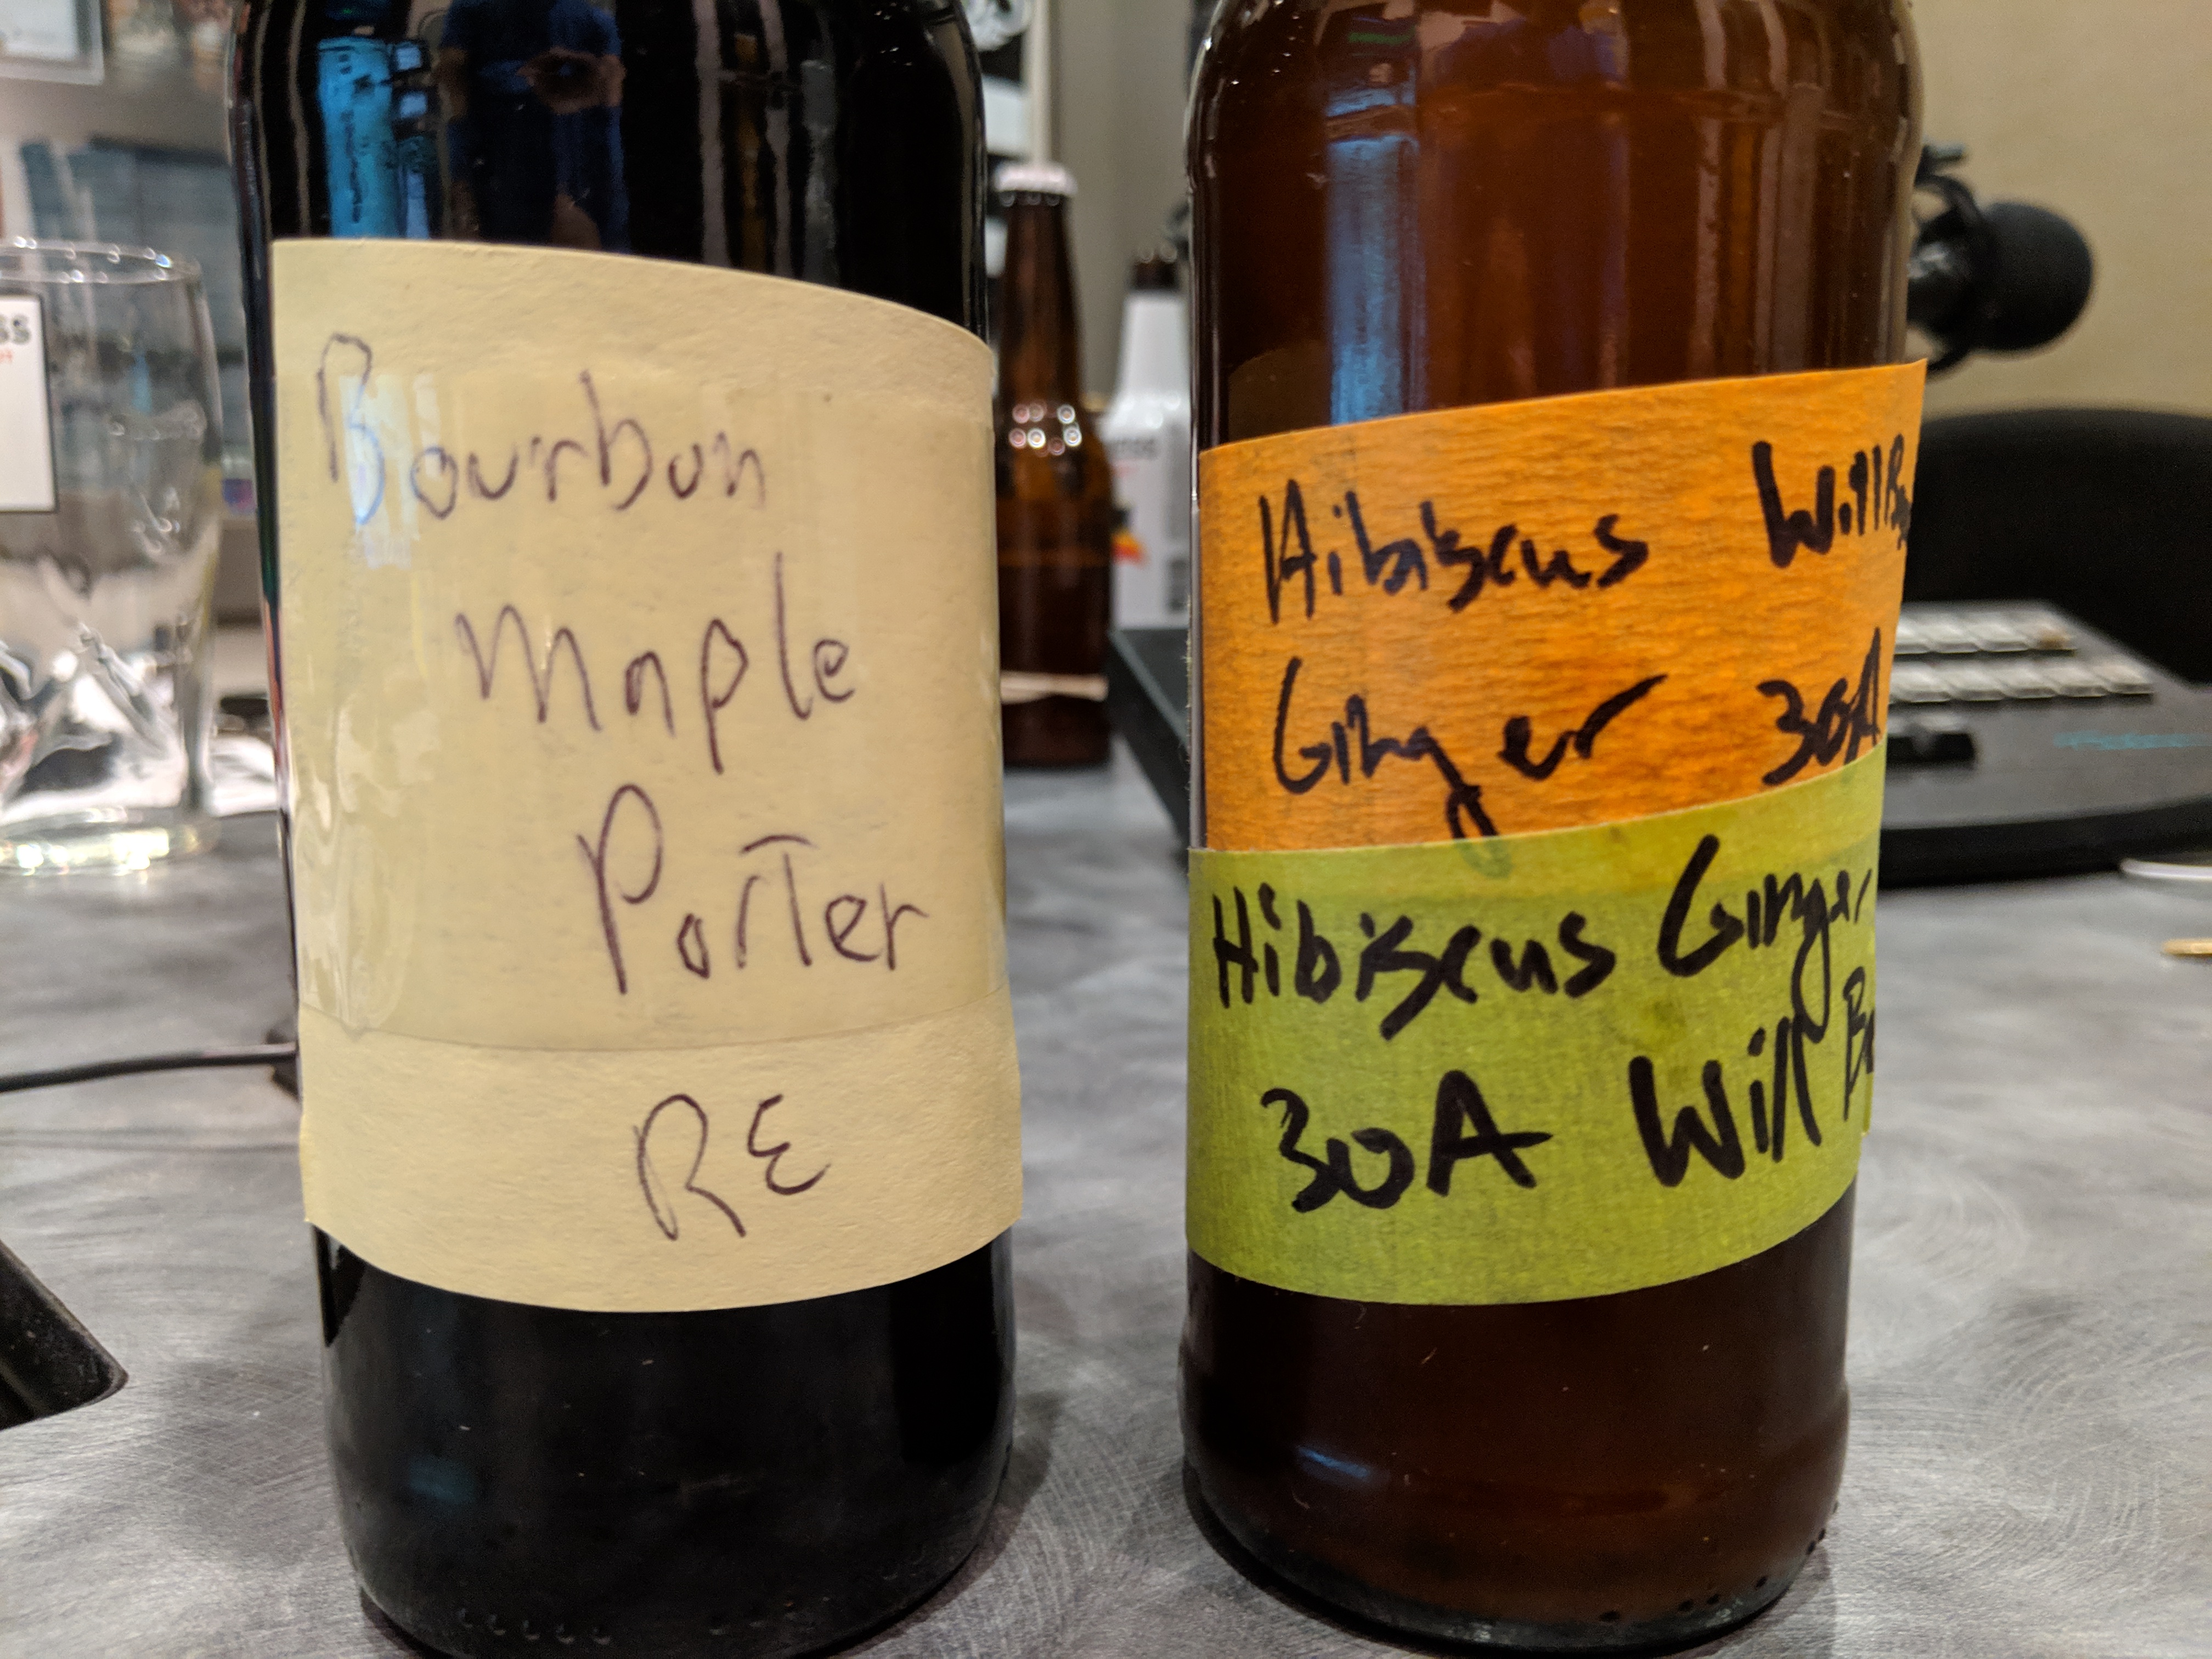 Bourbon
Maple
Porter
RE
Hibiscus Will
Ginger 30A
Hibiscus Ginger
30A Will